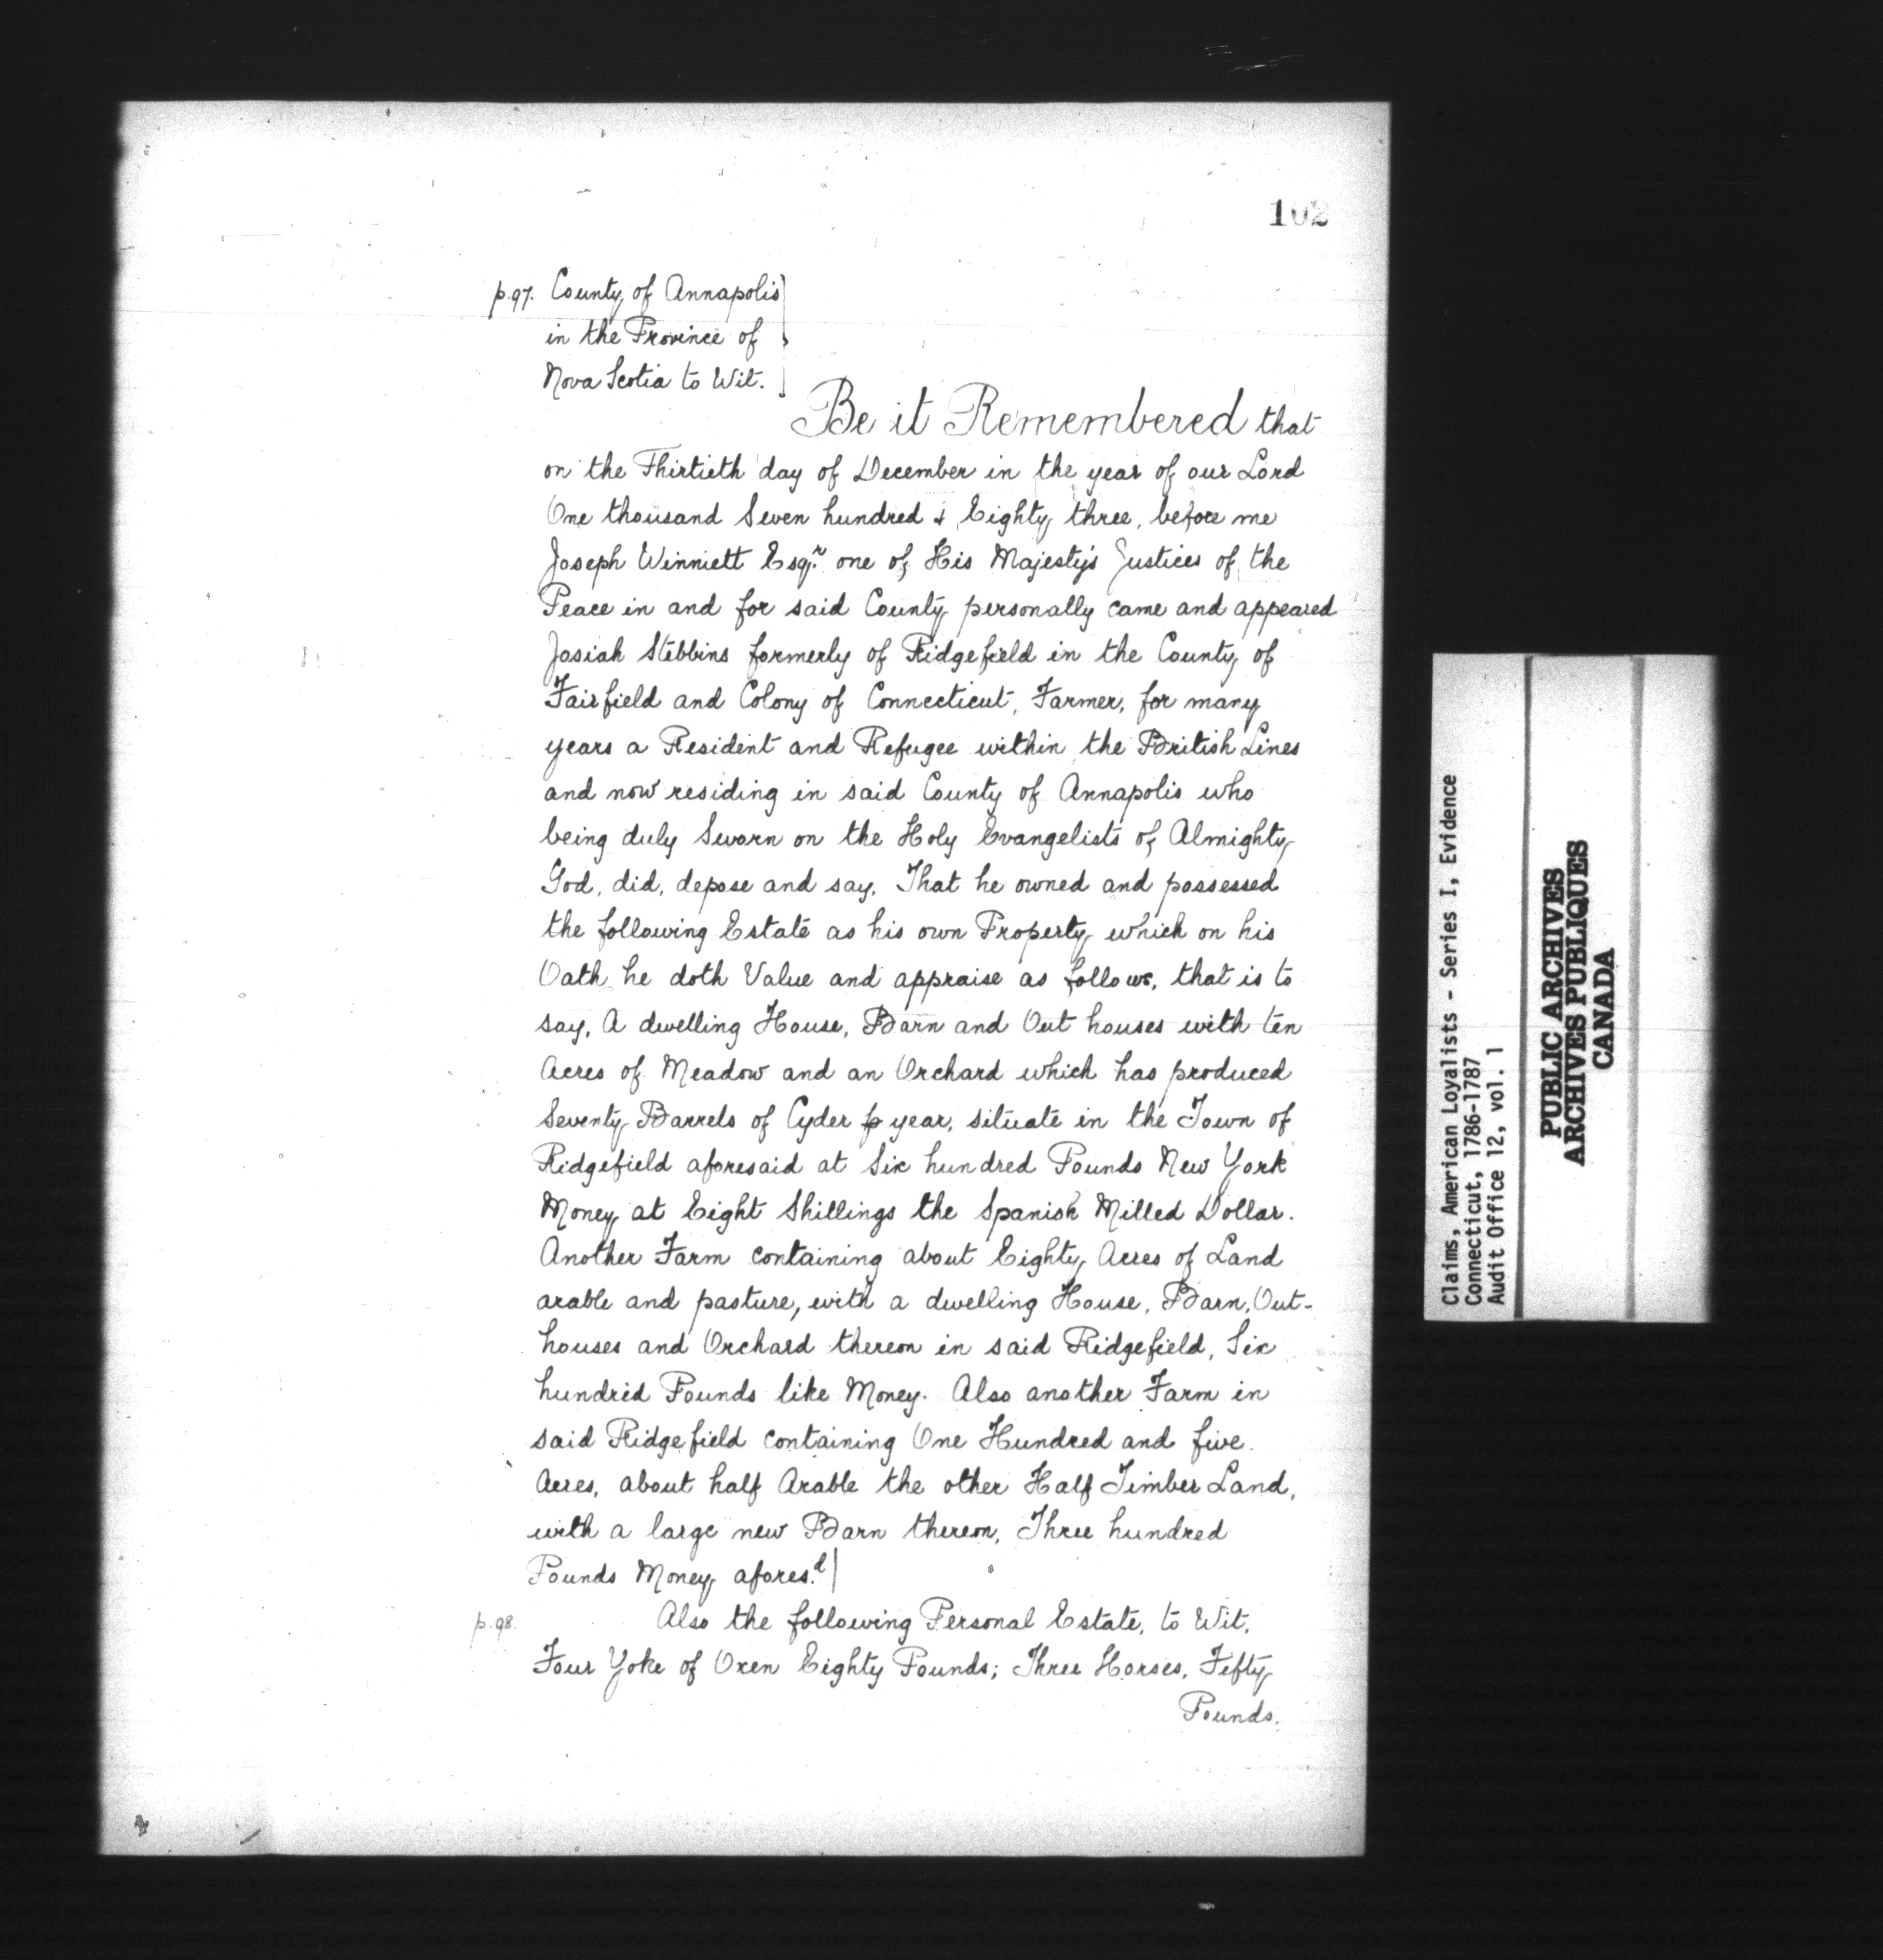 102
p.97. County of Annapolis
in the Province of
Nova Scotia to Wit.
Be it Remembered that
on the Thirtieth day of December in the year of our Lord
One thousand Seven hundred & Eighty three, before me
Joseph Winniett Esqr. one of His Majesty's Justices of the
Peace in and for said County personally came and appeared
Josiah Stebbins formerly of Ridgefield in the County of
Fairfield and Colony of Connecticut, Farmer, for many
years a Resident and Refugee within the British Lines
and now residing in said County of Annapolis who
being duly Sworn on the Holy Evangelists of Almighty
God, did, depose and say, That he owned and possessed
the following Estate as his own Property which on his
Oath he doth Value and appraise as follows, that is to
say, A dwelling House, Barn and Out houses with ten
Acres of Meadow and an Orchard which has produced
Seventy Barrels of Cyder p year, situate in the Town of
Ridgefield aforesaid at Six hundred Pounds New York
Money at Eight Shillings the Spanish Milled Dollar.
Another Farm containing about Eighty Acres of Land
arable and pasture, with a dwelling House, Barn, Out-
houses and Orchard thereon in said Ridgefield, Six
hundred Pounds like Money. Also another Farm in
said Ridgefield containing One Hundred and five
Acres, about half Arable the other Half Timber Land,
with a large new Barn thereon, Three hundred
Pounds Money afores.d
p.98. Also the following Personal Estate, to Wit,
Four Yoke of Oxen Eighty Pounds; Three Horses, Fifty
Pounds.
Claims, American Loyalists - Series I, Evidence
Connecticut, 1786-1787
Audit Office 12, vol. 1
PUBLIC ARCHIVES
ARCHIVES PUBLIQUES
CANADA